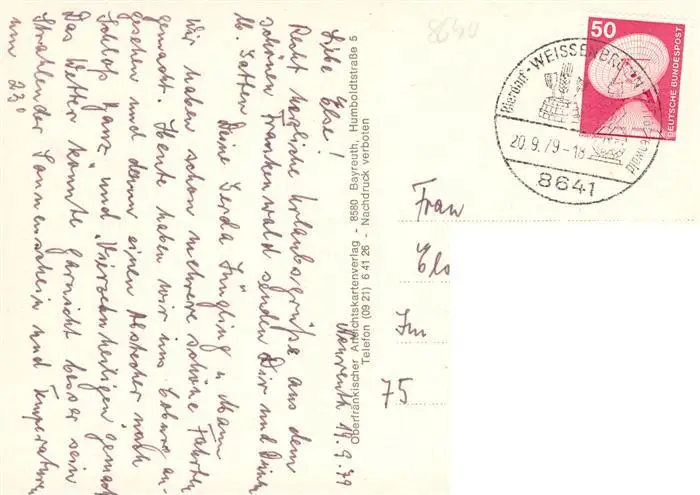 Neureuth 17.9.79
Liebe Else!
Recht herzliche Urlaubsgrüße aus dem
schönen Frankenwald senden Dir und Deinem
lb. Gatten
Deine Gerda Jüngling u. Mann
Wir haben schon mehrere schöne Fahrten
gemacht. Heute haben wir uns Coburg an-
gesehen und dann einen Abstecher nach
Schloß Banz und "Vierzehnheiligen gemacht
Das Wetter könnte garnicht besser sein
Strahlender Sonnenschein und Temperaturen
um 23°
Oberfränkischer Ansichtskartenverlag - 8580 Bayreuth, Humboldtstraße 5
Telefon (09 21) 6 41 26 - Nachdruck verboten
50
DEUTSCHE BUNDESPOST
Bierdorf · WEISSENBRUNN
20.9.79-18
8641
Frau
Els
Im
75